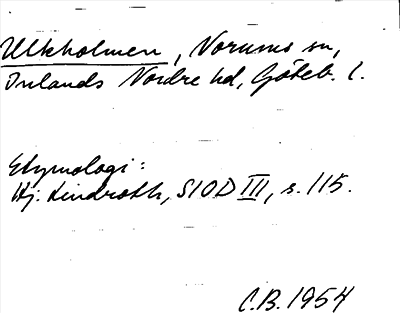 Ulkholmen, Norums sn,
Inlands Nordre hd, Göteb. l.
Etymologi:
Hj. Lindroth, SIOD III, s. 115.
C.B. 1954